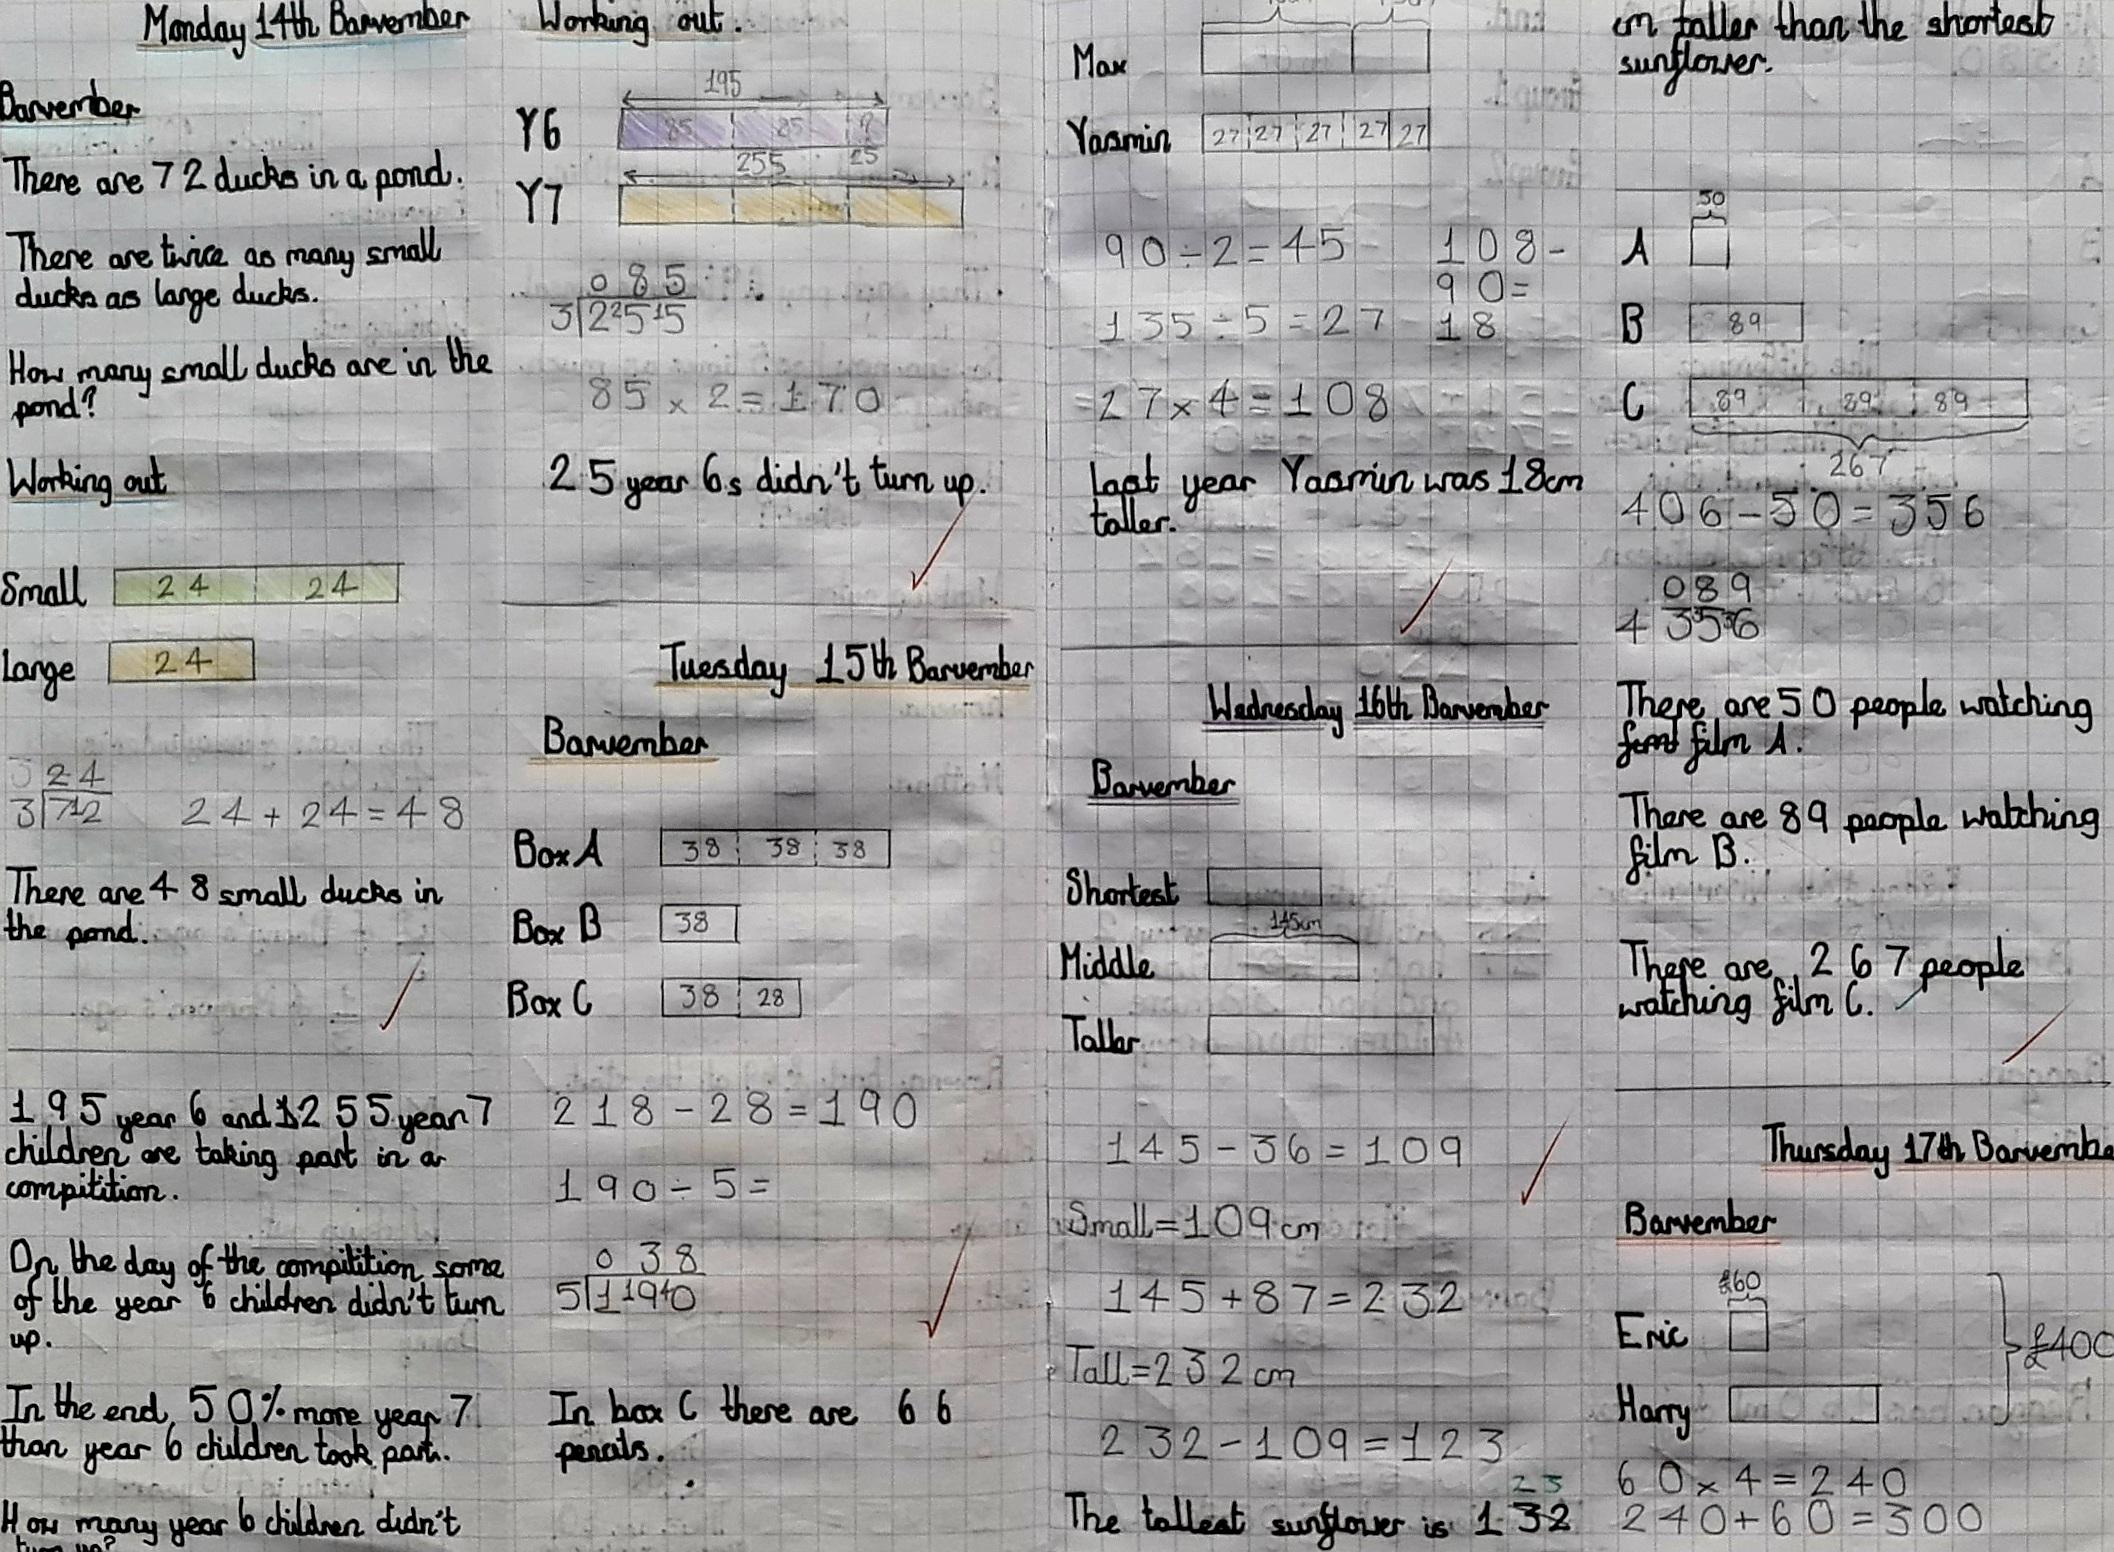 Monday 14th Barvember
Barvember
There are 72 ducks in a pond.
There are twice as many small
ducks as large ducks.
How many small ducks are in the
pond?
Working out
Small 24 24
Large 24
24
3 72 24 + 24 = 48
There are 48 small ducks in
the pond.
195 year 6 and 255 year 7
children are taking part in a
compitition.
On the day of the compitition some
of the year 6 children didn't turn
up.
In the end, 50% more year 7
than year 6 children took part.
How many year 6 children didn't
turn up?
Working out.
195
Y6 85 85 ?
255 25
Y7
085
3 2²5¹5
85 × 2 = 170
25 year 6s didn't turn up.
Tuesday 15th Barvember
Barvember
Box A 38 38 38
Box B 38
Box C 38 28
218 - 28 = 190
190 ÷ 5 =
038
5 1¹9⁴0
In box C there are 66
pencils.
Max
Yasmin 27 27 27 27 27
90 ÷ 2 = 45 108 -
90 =
135 ÷ 5 = 27 18
27 × 4 = 108
Last year Yasmin was 18cm
taller.
Wednesday 16th Barvember
Barvember
Shortest
145cm
Middle
Taller
145 - 36 = 109
Small = 109cm
145 + 87 = 232
Tall = 232cm
232 - 109 = 123
23
The tallest sunflower is 132
cm taller than the shortest
sunflower.
50
A
B 89
C 89 89 89
267
406 - 50 = 356
089
4 3³5³6
There are 50 people watching
film A.
There are 89 people watching
film B.
There are 267 people
watching film C.
Thursday 17th Barvembe
Barvember
£60
Eric
£400
Harry
60 × 4 = 240
240 + 60 = 300